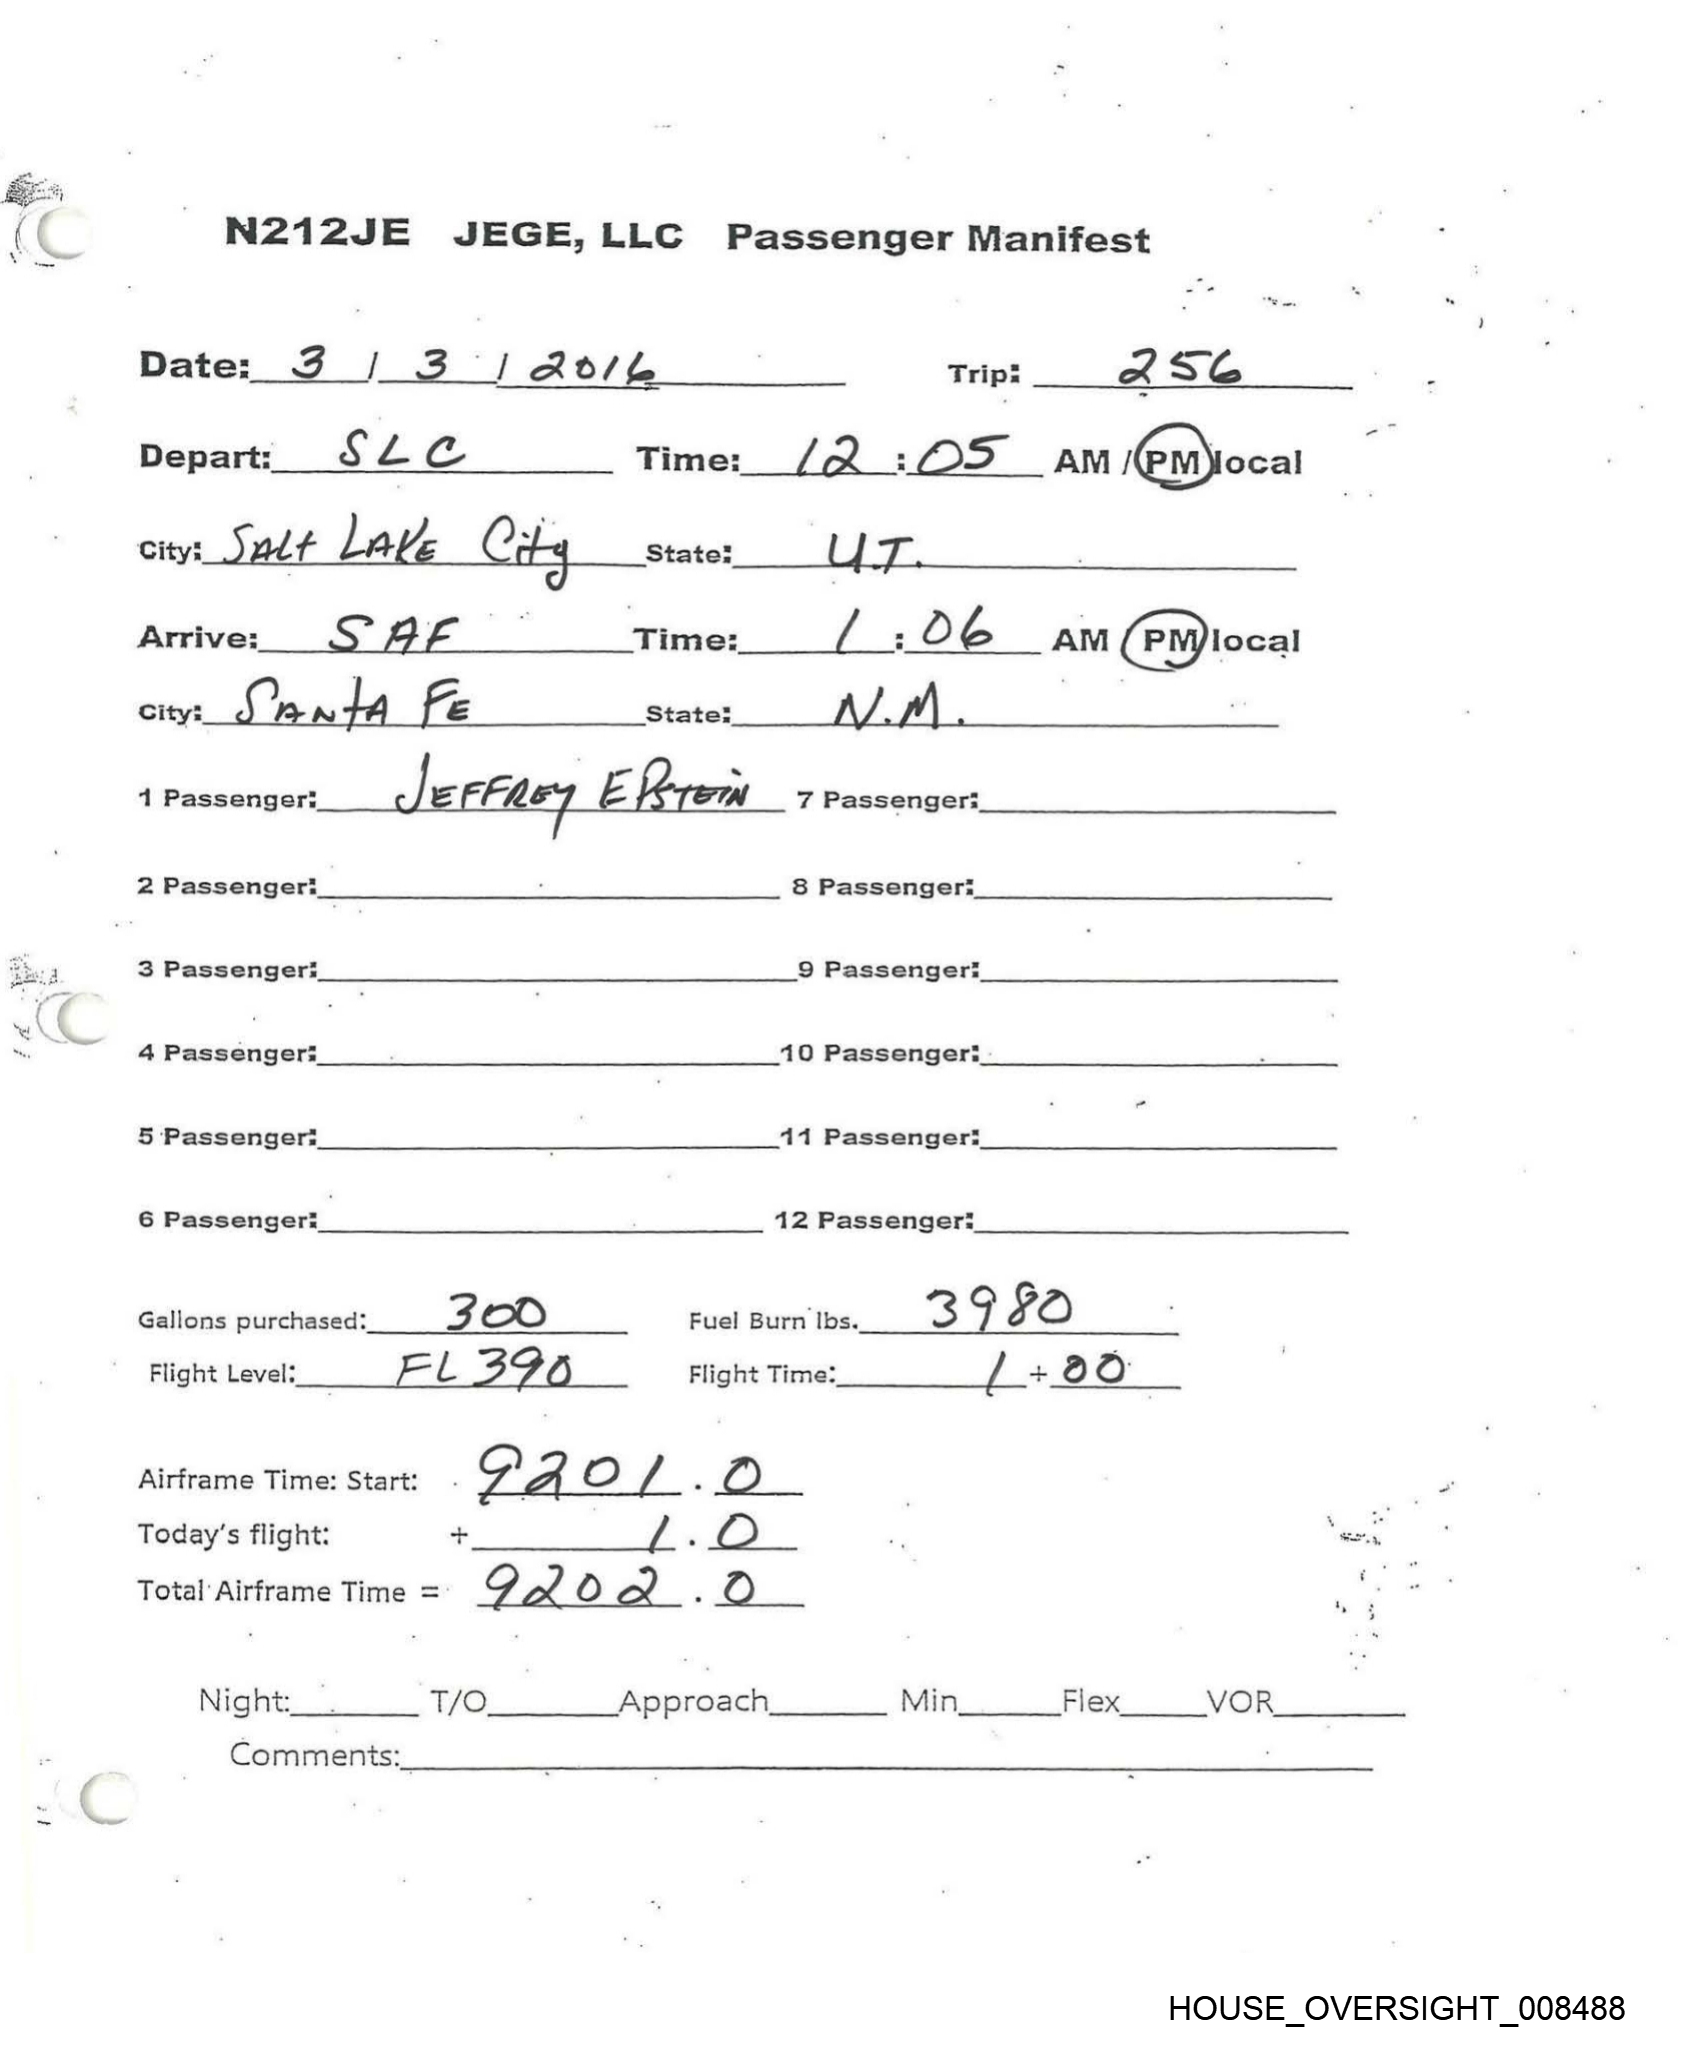 N212JE JEGE, LLC Passenger Manifest
Date: 3 / 3 / 2016 Trip: 256
Depart: SLC Time: 12:05 AM / PM local
City: Salt Lake City State: U.T.
Arrive: SAF Time: 1:06 AM PM local
City: Santa Fe State: N.M.
1 Passenger: Jeffrey Epstein 7 Passenger:
2 Passenger: 8 Passenger:
3 Passenger: 9 Passenger:
4 Passenger: 10 Passenger:
5 Passenger: 11 Passenger:
6 Passenger: 12 Passenger:
Gallons purchased: 300 Fuel Burn lbs. 3980
Flight Level: FL 390 Flight Time: 1 + 00
Airframe Time: Start: 9201.0
Today's flight: + 1.0
Total Airframe Time = 9202.0
Night: T/O Approach Min Flex VOR
Comments:
HOUSE_OVERSIGHT_008488